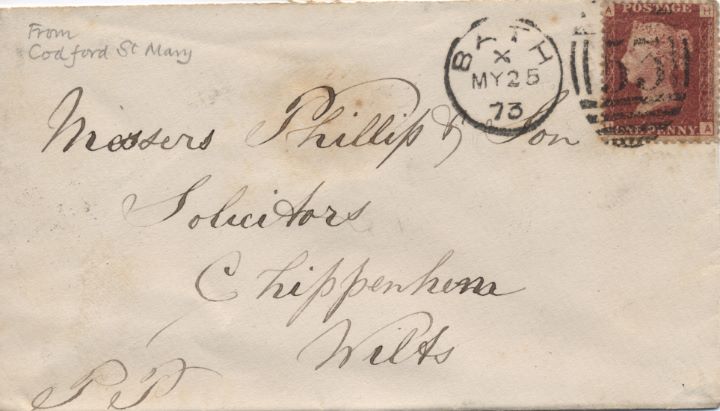 From
Codford St Mary
BATH
X
MY 25
73
A H
POSTAGE
53
ONE PENNY
A
Messers Phillip & Son
Solicitors
Chippenham
Wilts
P P